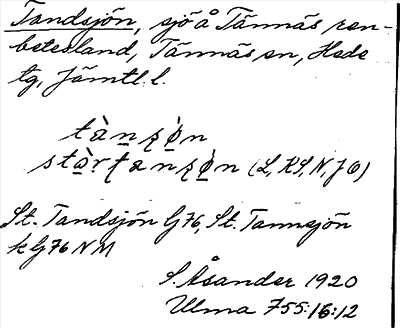 Tandsjön, sjö å Tännäs ren-
betesland, Tännäs sn, Hede
tg, Jämtl. l.
tànʂò̱n
stò̱rtanʂò̱n (L, KS, N, JÖ)
St. Tandsjön G76, St. Tannsjön
k G76 NM
S. Åsander 1920
Ulma 755:16:12